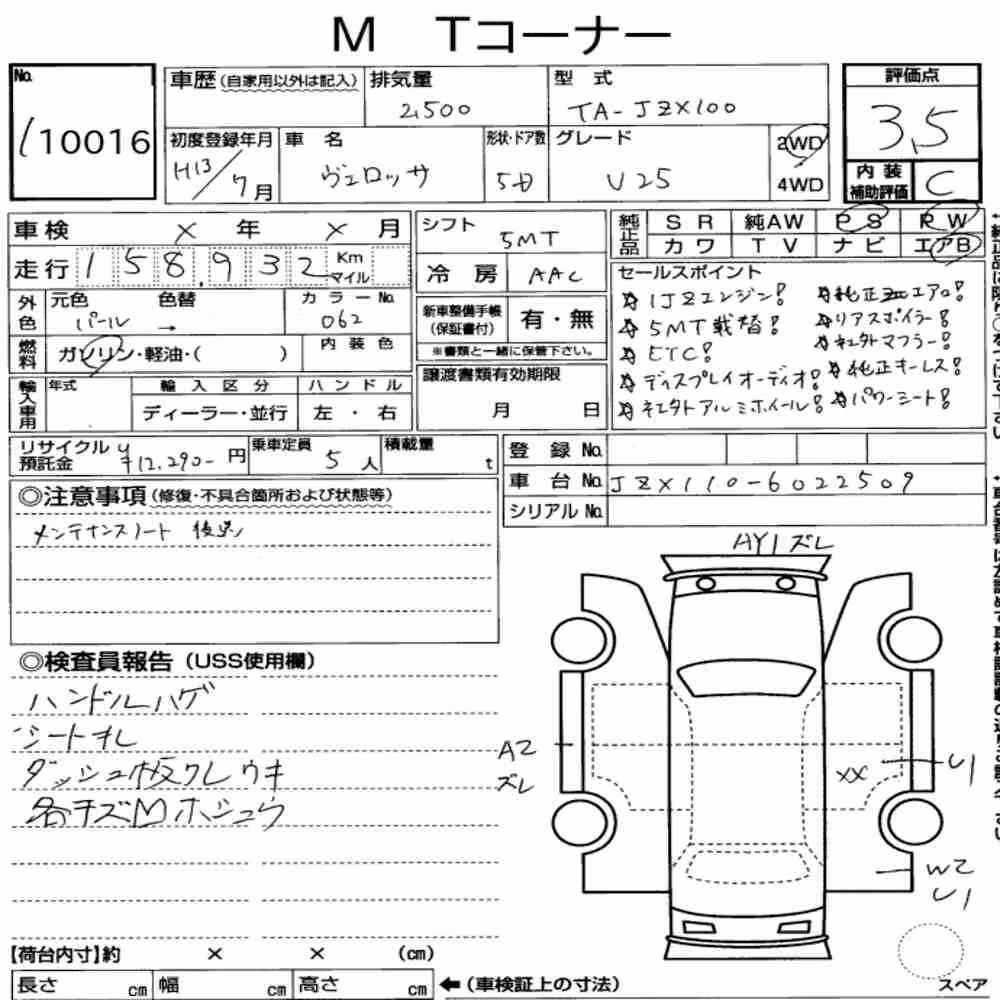 M Tコーナー
No. 車歴(自家用以外は記入) 排気量 型式 評価点
110016 2,500 TA-JZX100 3,5
初度登録年月 車名 形状・ドア数 グレード 2WD
H13/7月 ヴェロッサ 5D V25 4WD
内装補助評価 C
車検 × 年 × 月 シフト 5MT 純正品 SR 純AW PS PW
カワ TV ナビ エアB
走行 158,932 Km マイル 冷房 AAC セールスポイント
外色 元色 色替 カラーNo. 新車整備手帳(保証書付) 有・無
パール → 062 ※書類と一緒に保管下さい。
燃料 ガソリン・軽油・( ) 内装色 譲渡書類有効期限
月 日
1JZエンジン! 純正エアロ!
5MT載替! リアスポイラー!
ETC! 社外マフラー!
ディスプレイオーディオ! 純正キーレス!
社外アルミホイール! パワーシート!
輸入車用 年式 輸入区分 ハンドル
ディーラー・並行 左・右
リサイクル預託金 ¥12,290- 円 乗車定員 5人 積載量 t
登録No.
車台No. JZX110-6022509
シリアルNo.
◎注意事項(修復・不具合箇所および状態等)
メンテナンスノート 後送
◎検査員報告(USS使用欄)
ハンドルハゲ
シートオレ
ダッシュ板ワレ ウキ
各キズM ホシュウ
AY1ズレ
A2
ズレ
XX
U1
W2
U1
スペア
【荷台内寸】約 × × (cm)
長さ cm 幅 cm 高さ cm ←(車検証上の寸法)